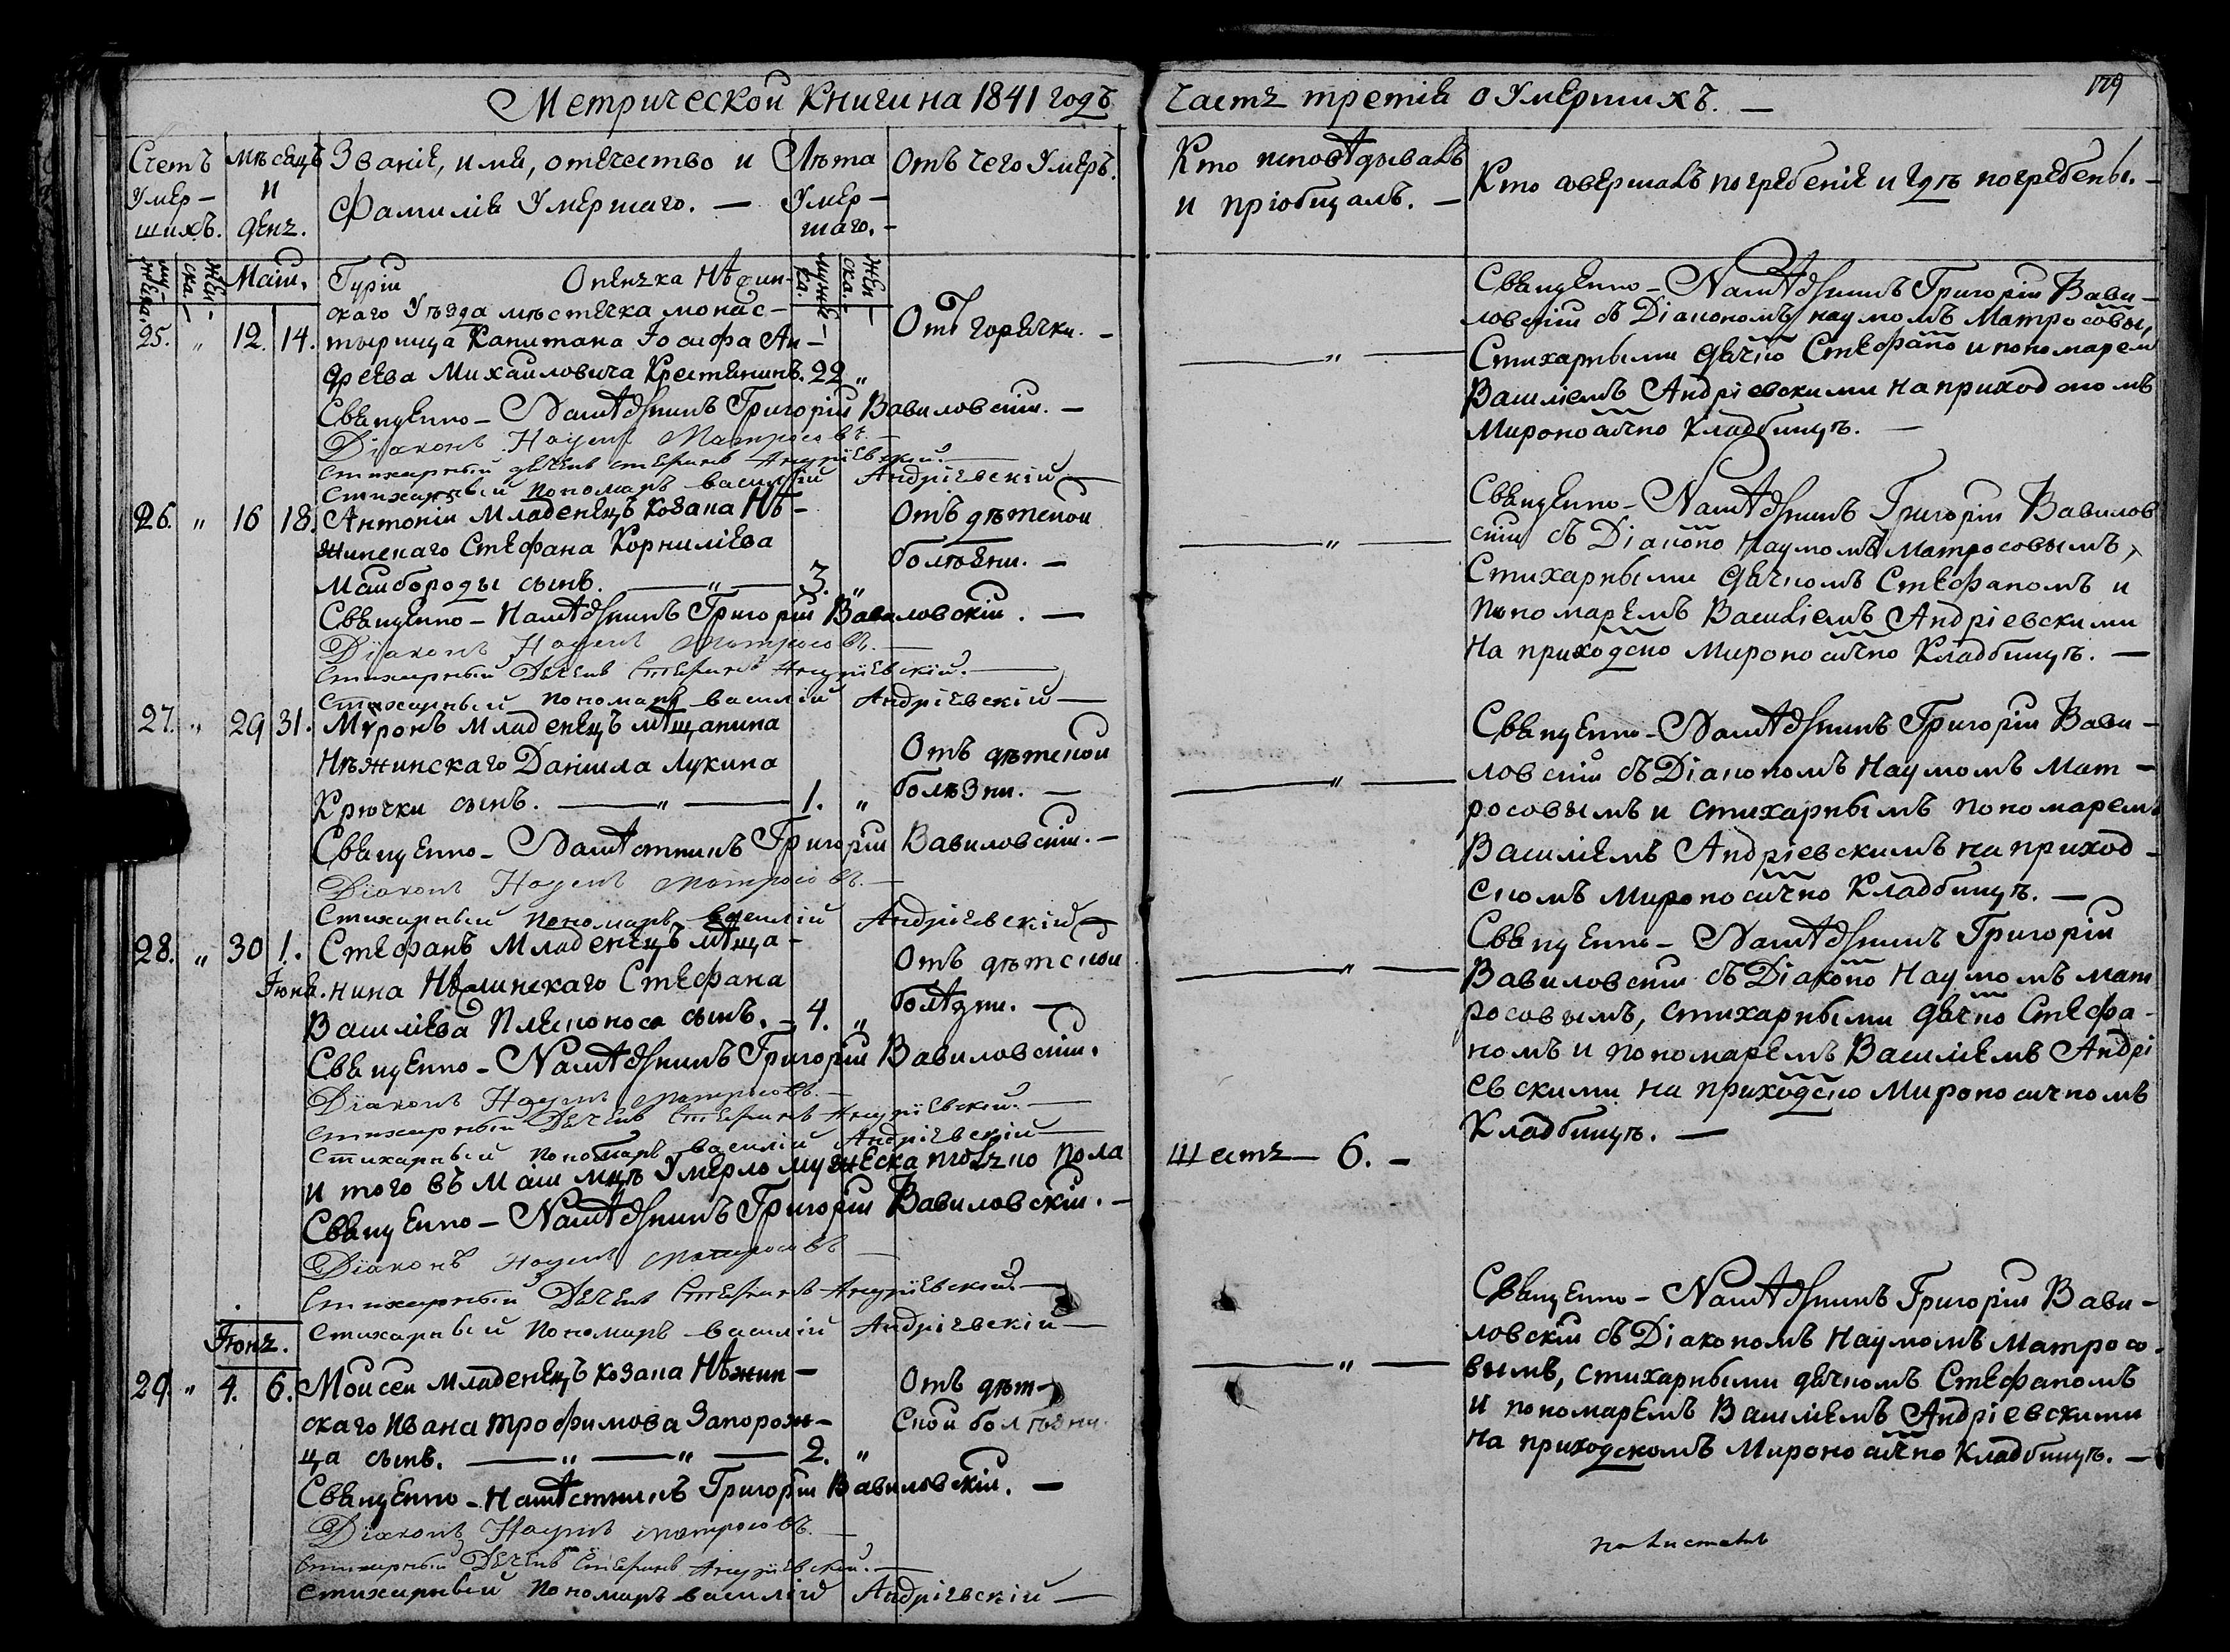 Метрической Книги на 1841 годъ
Часть третія о Умершихъ. —
179
Счетъ Умер-шихъ.
Мѣсяцъ и день.
Званіе, имя, отечество и Фамилія Умершаго. —
Лѣта Умер-шаго. —
Отъ чего Умеръ.
Кто исповѣдывалъ и пріобщалъ. —
Кто совершалъ погребеніе и гдѣ погребены. —
Маій.
25. „ 12. 14.
Гурій Опенька Нѣжин-
скаго Уѣзда мѣстечка монас-
тырища Капитана Іосифа Ан-
дреева Михайловича Крестянинъ. 22 „
Отъ горячки. —
Священно-Намѣстникъ Григорій Вавиловскій. —
Діаконъ Наумъ Матросовъ. —
Стихарный Дячекъ Стефанъ Андріевскій. —
Стихарный Пономарь Василій Андріевскій —
— „ —
Священно-Намѣстникъ Григорій Вави-
ловскій съ Діакономъ Наумомъ Матросовы,
Стихарными дячко Стефано и пономарем
Василіемъ Андріевскими на приходскомъ
Мироносично Кладбищѣ. —
26. „ 16 18.
Антоній Младенецъ козака Нѣ-
жинскаго Стефана Корниліева
Майбороды сынъ. — „ — 3. „
Отъ дѣтской
болѣзни. —
Священно-Намѣстникъ Григорій Вавиловскій. —
Діаконъ Наумъ Матросовъ. —
Стихарный Дячекъ Стефанъ Андріевскій. —
Стихарный Пономарь Василій Андріевскій —
— „ —
Священно-Намѣстникъ Григорій Вавилов
скій съ Діаконо Наумомъ Матросовымъ,
Стихарными Дячкомъ Стефаномъ и
пономаремъ Василіемъ Андріевскими
на приходско Мироносично Кладбищѣ. —
27. „ 29 31.
Мѵронъ Младенецъ мѣщанина
Нѣжинскаго Даніила Лукина
Крючки сынъ. — „ — 1. „
Отъ дѣтской
болѣзни. —
Священно-Намѣстникъ Григорій Вавиловскій. —
Діаконъ Наумъ Матросовъ. —
Стихарный Пономарь Василій Андріевскій —
— „ —
Священно-Намѣстникъ Григорій Вави-
ловскій съ Діакономъ Наумомъ Мат-
росовымъ и стихарнымъ пономаремъ
Василіемъ Андріевскимъ на приход-
скомъ Мироносично Кладбищѣ. —
28. „ 30 1. Іюня.
Стефанъ Младенецъ мѣща-
нина Нѣжинскаго Стефана
Василіева Плесконоса сынъ. — 4. „
Отъ дѣтской
болѣзни. —
Священно-Намѣстникъ Григорій Вавиловскій.
Діаконъ Наумъ Матросовъ. —
Стихарный Дячекъ Стефанъ Андріевскій. —
Стихарный Пономарь Василій Андріевскій —
— „ —
Священно-Намѣстникъ Григорій
Вавиловскій съ Діаконо Наумомъ мат
росовымъ, стихарными дячко Стефа-
номъ и пономаремъ Василіемъ Андрі
евскими на приходско Мироносичномъ
Кладбищѣ. —
И того въ Маіи мцѣ Умерло мужеска только пола
Шесть — 6. —
Священно-Намѣстникъ Григорій Вавиловскій. —
Діаконъ Наумъ Матросовъ —
Стихарный Дячекъ Стефанъ Андріевскій. —
Стихарный Пономарь Василій Андріевскій —
Іюнь.
29. „ 4. 6.
Моисей младенецъ козака Нѣжин-
скаго Ивана Трофимова Запорож-
ца сынъ. — „ — „ — 2. „
Отъ дѣт-
ской болѣзни.
Священно-Намѣстникъ Григорій Вавиловскій. —
Діаконъ Наумъ Матросовъ. —
Стихарный Дячекъ Стефанъ Андріевскій. —
Стихарный Пономарь Василій Андріевскій —
— „ —
Священно-Намѣстникъ Григорій Вави-
ловскій съ Діакономъ Наумомъ Матросо-
вымъ, стихарными дячкомъ Стефаномъ
и пономаремъ Василіемъ Андріевскими
на приходскомъ Мироносично Кладбищѣ. —